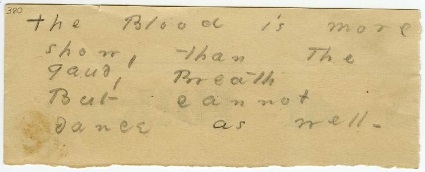 380
the Blood is more
showy than the
gaudy Breath
But cannot
dance as well -